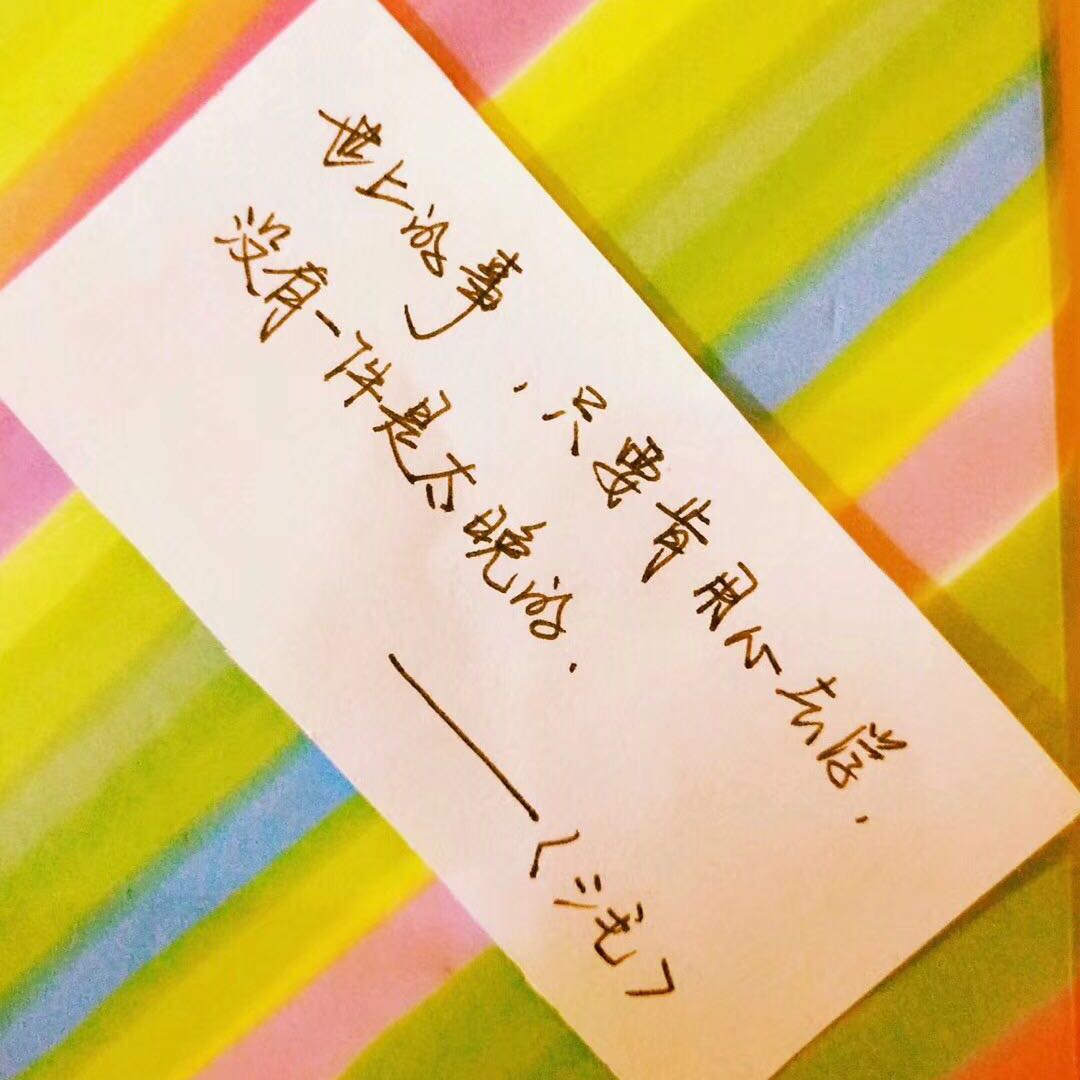 世上的事，只要肯用心去学.
没有一件是太晚的.
——〈三毛〉